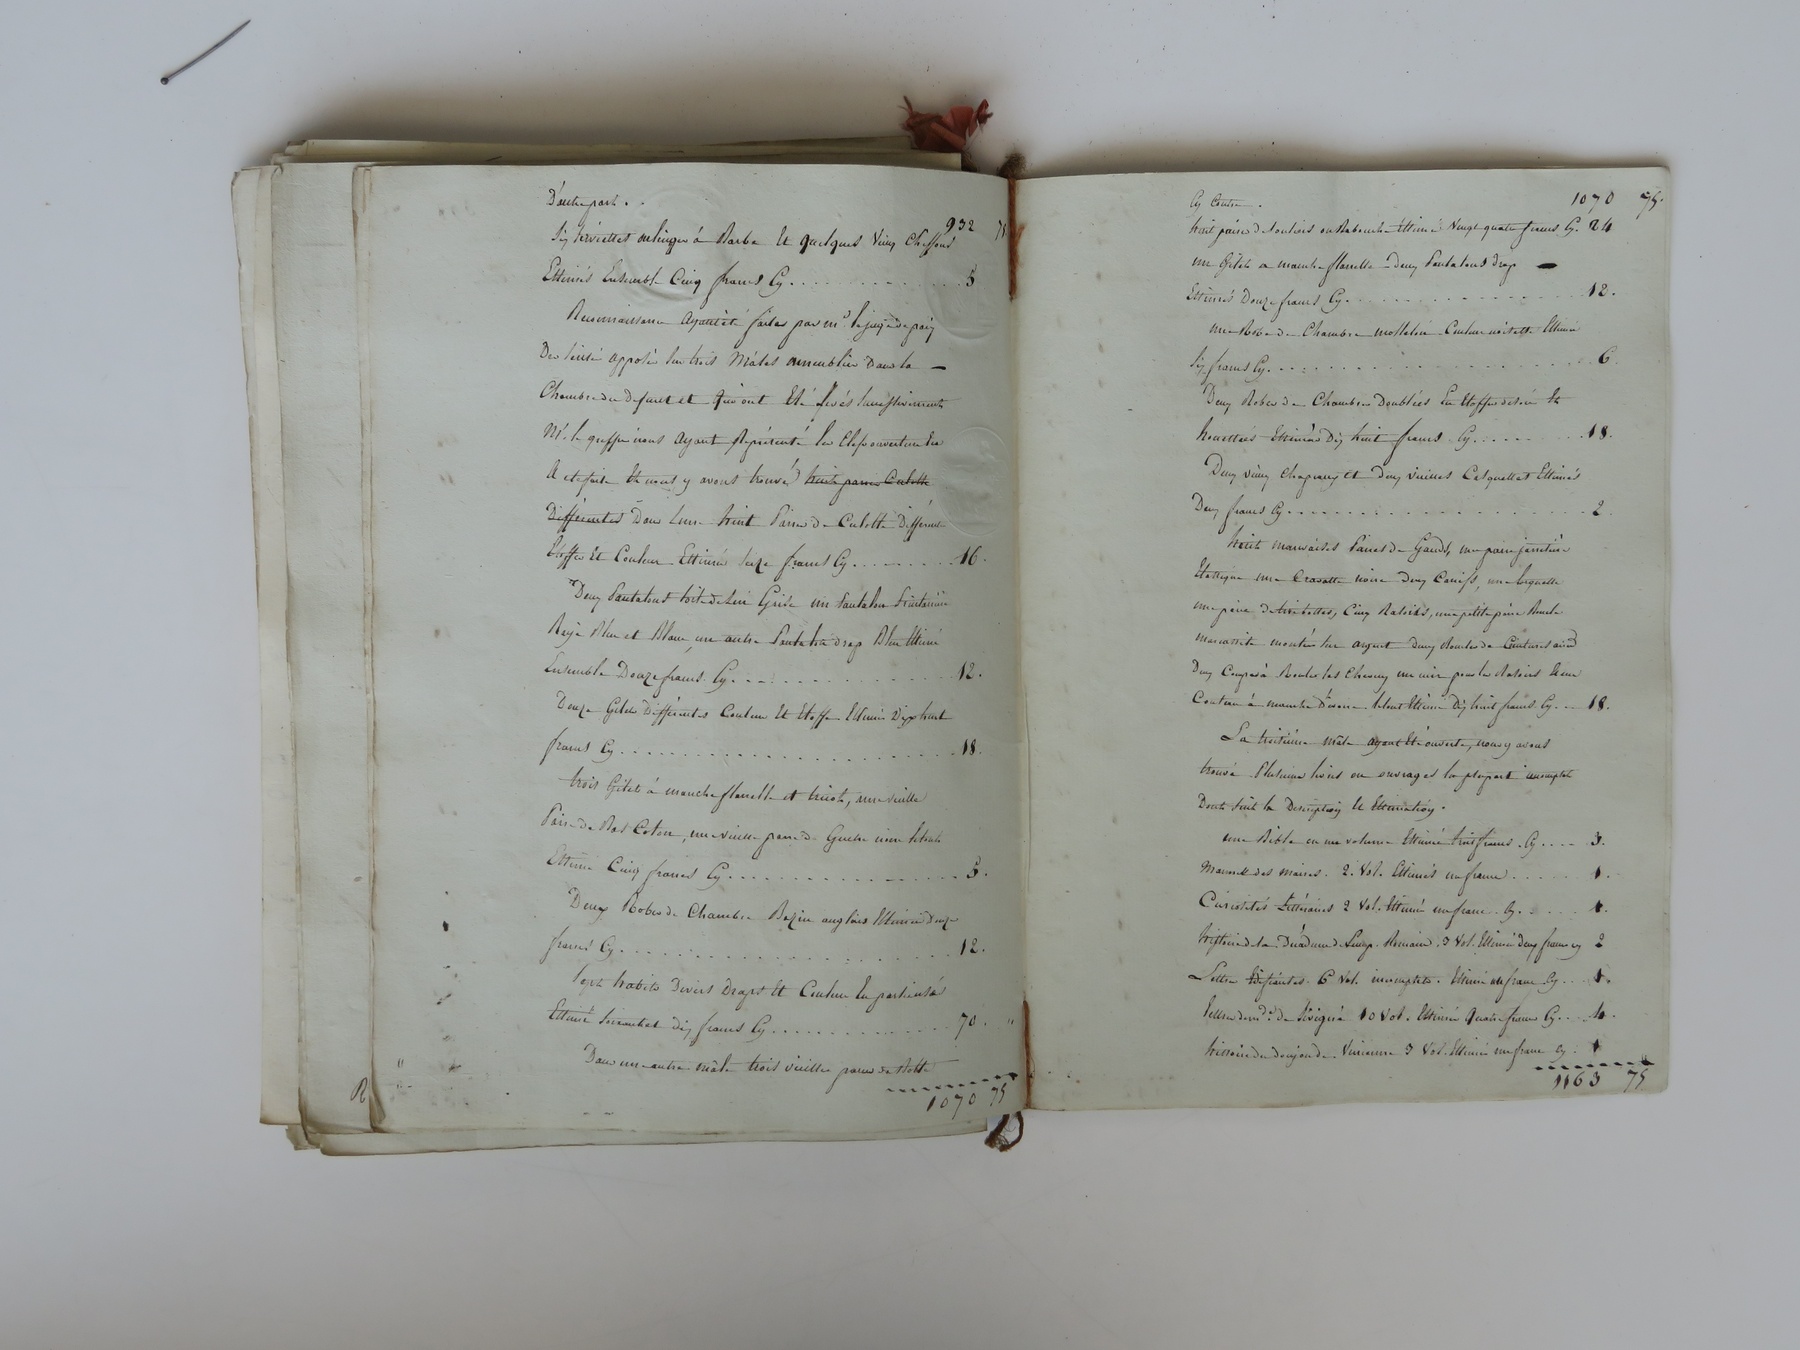 D'autre part . .
932 75
Six serviettes ou linges à Barbe Et quelques vieux chiffons
Estimés Ensemble Cinq francs Cy . . . . . . . . . . . . 5
Reconnaissance ayant été faites par mr. le juge de paix
Des scellés apposés sur trois Males ensemblées Dans la —
Chambre du Defunt et qui ont Eté levés successivement
Mr. le greffier nous ayant Représenté les Clefs ouverture En
A eté faite Et nous y avons trouvé huit paires Culotte
Différentes Dans l'une huit Paires de Culotte Différente
Etoffes Et Couleur Estimées Seize francs Cy . . . . . . . . 16.
Deux Pantalons toile de Grise un Pantalon
Rayé Bleu et Blanc, un autre Pantalon drap Bleu Estimé
Ensemble Douze francs Cy . . . . . . . . . . . . 12.
Douze Gilets Différentes Couleur Et Etoffe Estimés Dix huit
francs Cy . . . . . . . . . . . . . . . . . . 18.
trois Gilet à manche flanelle et tricot, une vieille
Paire de Bas Coton, une vieille paire de Guetre noire le tout
Estimé Cinq francs Cy . . . . . . . . . . . . . . 5.
Deux Robes de Chambre Bazin anglais Estimées Douze
francs Cy . . . . . . . . . . . . . . . . . . 12.
Sept habits Divers Draps Et Couleur
Estimé Soixante et dix francs Cy . . . . . . . . . . . 70. "
Dans une autre male trois vieilles paires de Botte
1070 75
R
Cy Contre . 1070 75.
huit paires de Souliers ou Babouche Estimés Vingt quatre francs Cy. 24
un Gilet a manche flanelle Deux Pantalons drap —
Estimés Douze francs Cy . . . . . . . . . . . . . 12.
une Robe de Chambre molleton Couleur noisette Estimée
Six francs Cy . . . . . . . . . . . . . . . . . 6.
Deux Robes de Chambre Doublées En Etoffes de soie Et
houettées Estimées Dix huit francs Cy . . . . . . . 18.
Deux vieux chapeaux et deux vieilles Casquettes Estimés
Deux francs Cy . . . . . . . . . . . . . . . . 2.
huit mauvaises Paires de Gands, une paire jarretière
Elastique une Cravatte noire deux Canifs, une lorgnette
une paire de, Cinq Rasoirs, une petite paire Boucle
marcassite montées sur argent Deux Boucles de Ceintures acier
Deux Compas à Rouler les Cheveux un cuir pour les Rasoirs Et un
Couteau à manche D'ivoire le tout Estimé Dix huit francs Cy . . 18.
La troisième male ayant Eté ouverte, nous y avons
trouvé Plusieurs livres ou ouvrages la plupart incomplet
Dont Suit la Description Et Estimation.
une Bible en un volume Estimée trois francs . Cy . . . . 3.
Manuel des maires . 2. Vol. Estimés un franc . . . . . . 1.
Curiosités Littéraires 2 Vol. Estimé un franc . Cy . . . . . 1.
histoire de la Décadence de l'emp. Romain. 3 Vol. Estimée Deux francs cy 2
Lettres Edifiantes . 6 Vol. incomplets . Estimé un franc Cy . . . 1.
lettres de md. de Sévigné 10 Vol. Estimés Quatre francs Cy . . . 4.
histoire du donjon de Vincenne 3 Vol. Estimée un franc cy . 1
1163 75